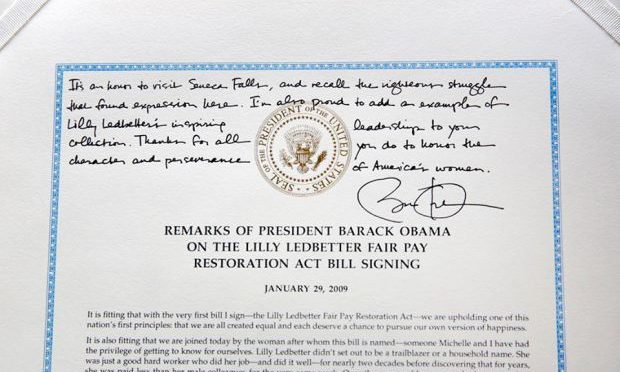 It's an honor to visit Seneca Falls, and recall the righteous struggle
that found expression here. I'm also proud to add an examples of
Lilly Ledbetter's inspiring leadership to your
collection. Thanks for all you do to honor the
character and perseverance of America's women.
SEAL OF THE PRESIDENT OF THE UNITED STATES
REMARKS OF PRESIDENT BARACK OBAMA
ON THE LILLY LEDBETTER FAIR PAY
RESTORATION ACT BILL SIGNING
JANUARY 29, 2009
It is fitting that with the very first bill I sign—the Lilly Ledbetter Fair Pay Restoration Act—we are upholding one of this
nation's first principles: that we are all created equal and each deserve a chance to pursue our own version of happiness.
It is also fitting that we are joined today by the woman after whom this bill is named—someone Michelle and I have had
the privilege of getting to know for ourselves. Lilly Ledbetter didn't set out to be a trailblazer or a household name. She
was just a good hard worker who did her job—and did it well—for nearly two decades before discovering that for years,
she was paid less than her male colleagues for the very same work.